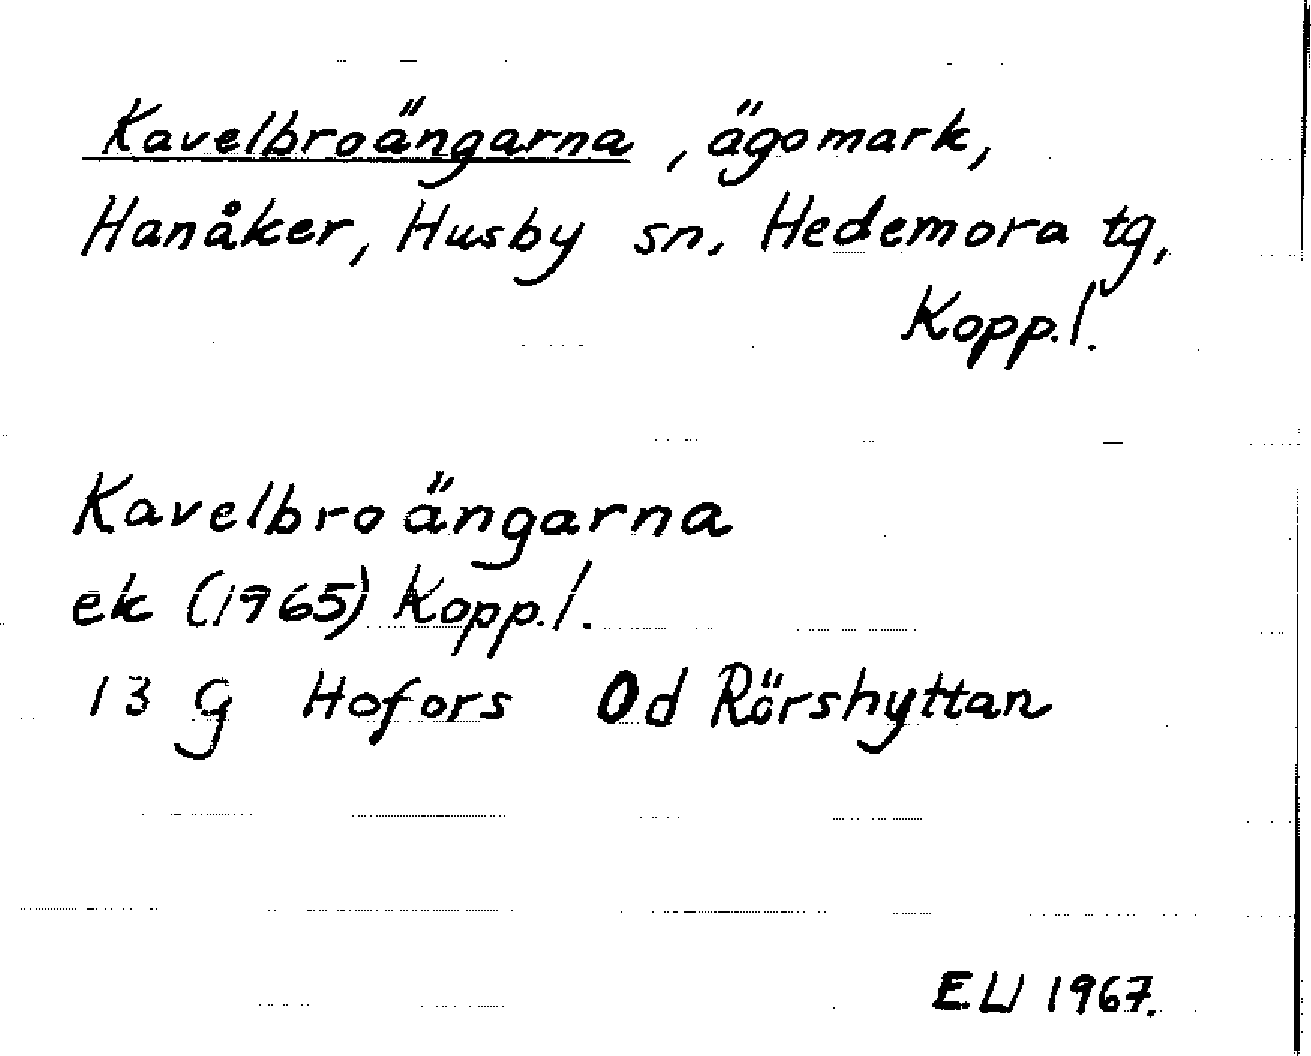 Kavelbroängarna, ägomark,
Hanåker, Husby sn, Hedemora tg,
Kopp.l.
Kavelbroängarna
ek (1965) Kopp.l.
13 G Hofors 0d Rörshyttan
EW 1967.